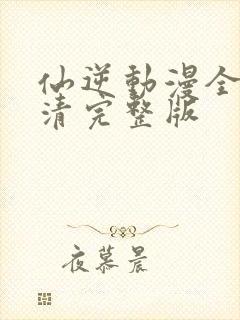 仙逆動漫全
清完整版
夜慕晨